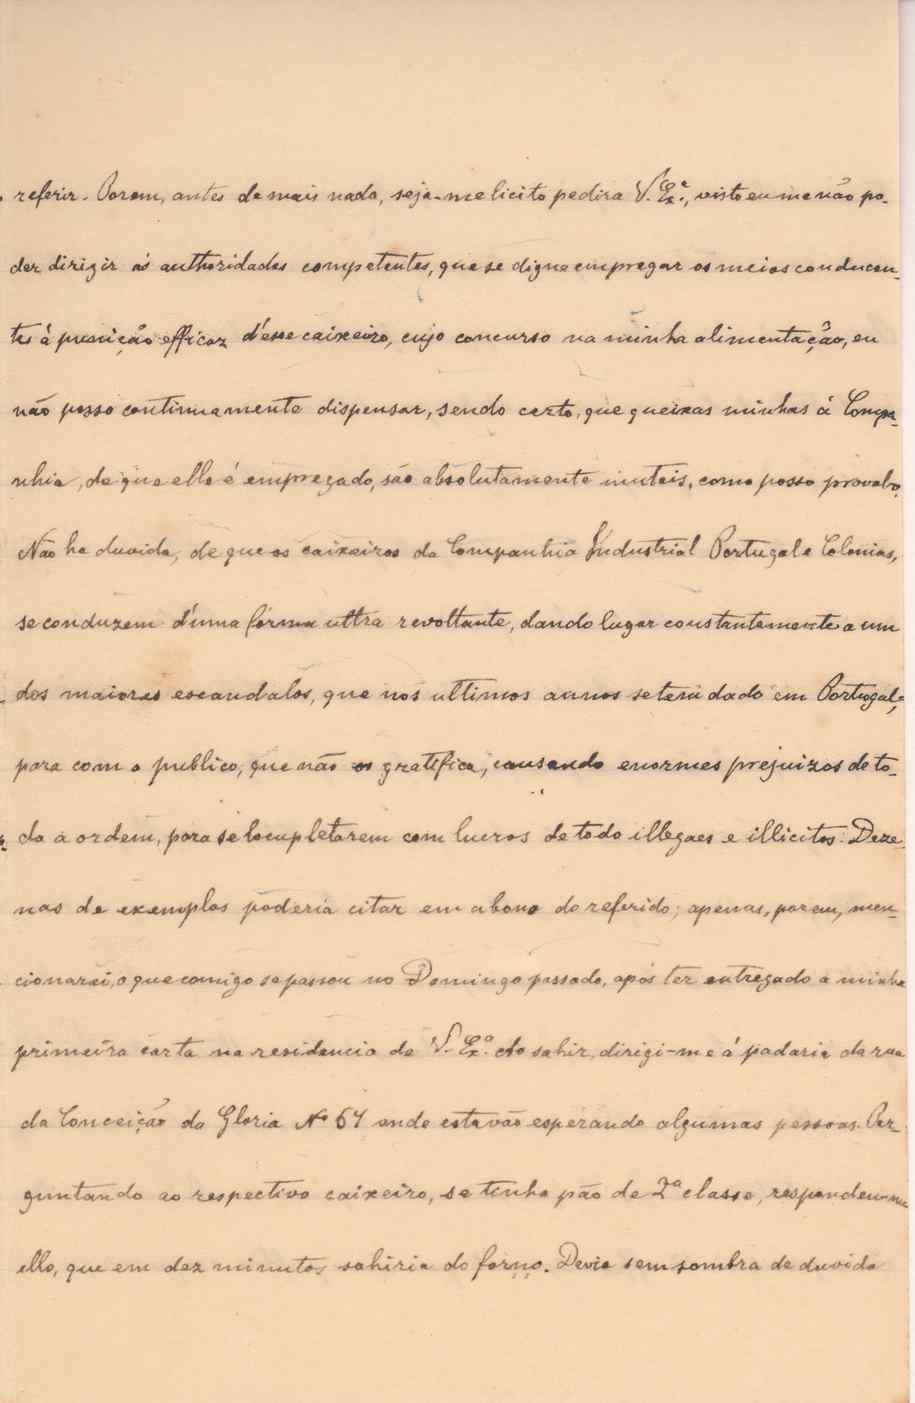 referir. Porem, antes de mais nada, seja-me licito pedir a V. Ex.ª, visto eu me não po-
der dirigir ás authoridades competentes, que se digne empregar os meios conducen-
tes á punição efficaz d'esse caixeiro, cujo concurso na minha alimentação, eu
não posso continuamente dispensar, sendo certo, que queixas minhas á Compa-
nhia, de que elle é empregado, são absolutamente inuteis, como posso proval-o.
Não ha duvida, de que os caixeiros da Companhia Industrial Portugal e Colonias,
se conduzem d'uma fórma ultra revoltante, dando lugar constantemente a um
dos maiores escandalos, que nos ultimos annos se tem dado em Portugal,
para com o publico, que não os gratifica, causando enormes prejuizos de to-
da a ordem, para se locupletarem com lucros de todo illegaes e illicitos. Deze-
nas de exemplos poderia citar em abono do referido; apenas, porem, men-
cionarei, o que comigo se passou no Domingo passado, após ter entregado a minha
primeira carta na residencia de V. Ex.ª. Ao sahir, dirigi-me á padaria da rua
da Conceição da Gloria Nº 67 onde estavão esperando algumas pessoas. Per-
guntando ao respectivo caixeiro, se tinha pão de 2ª classe, respondeu-me
elle, que em dez minutos sahiria do forno. Devia sem sombra de duvida